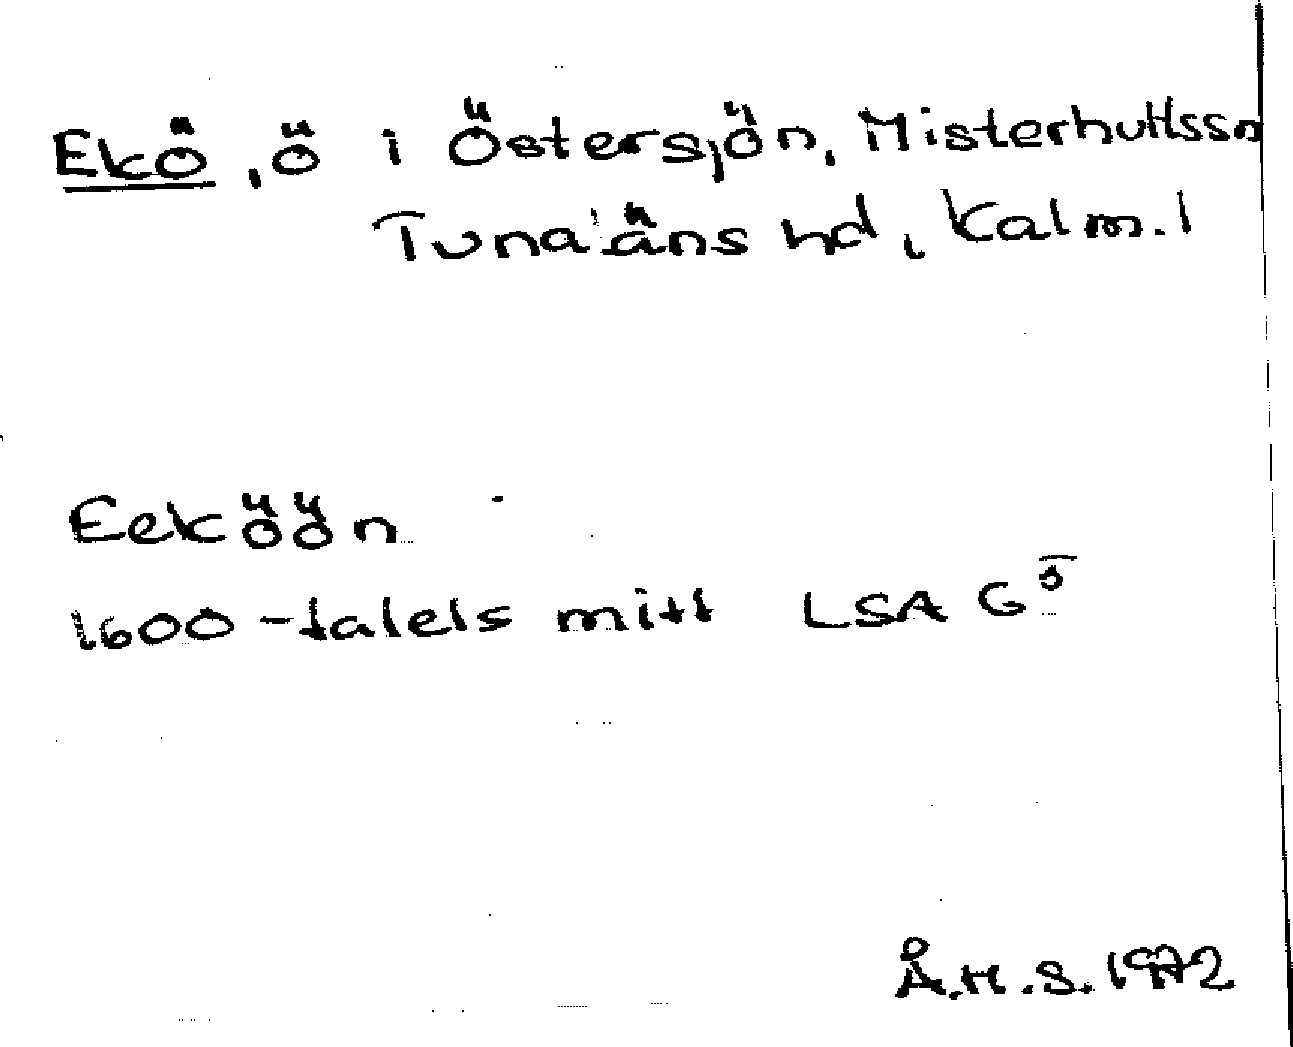 Ekö, ö i Östersjön, Misterhultssn
Tunaläns hd, Kalm. l
Eeköön
1600-talets mitt LSA G 5
Å.H.S. 1972